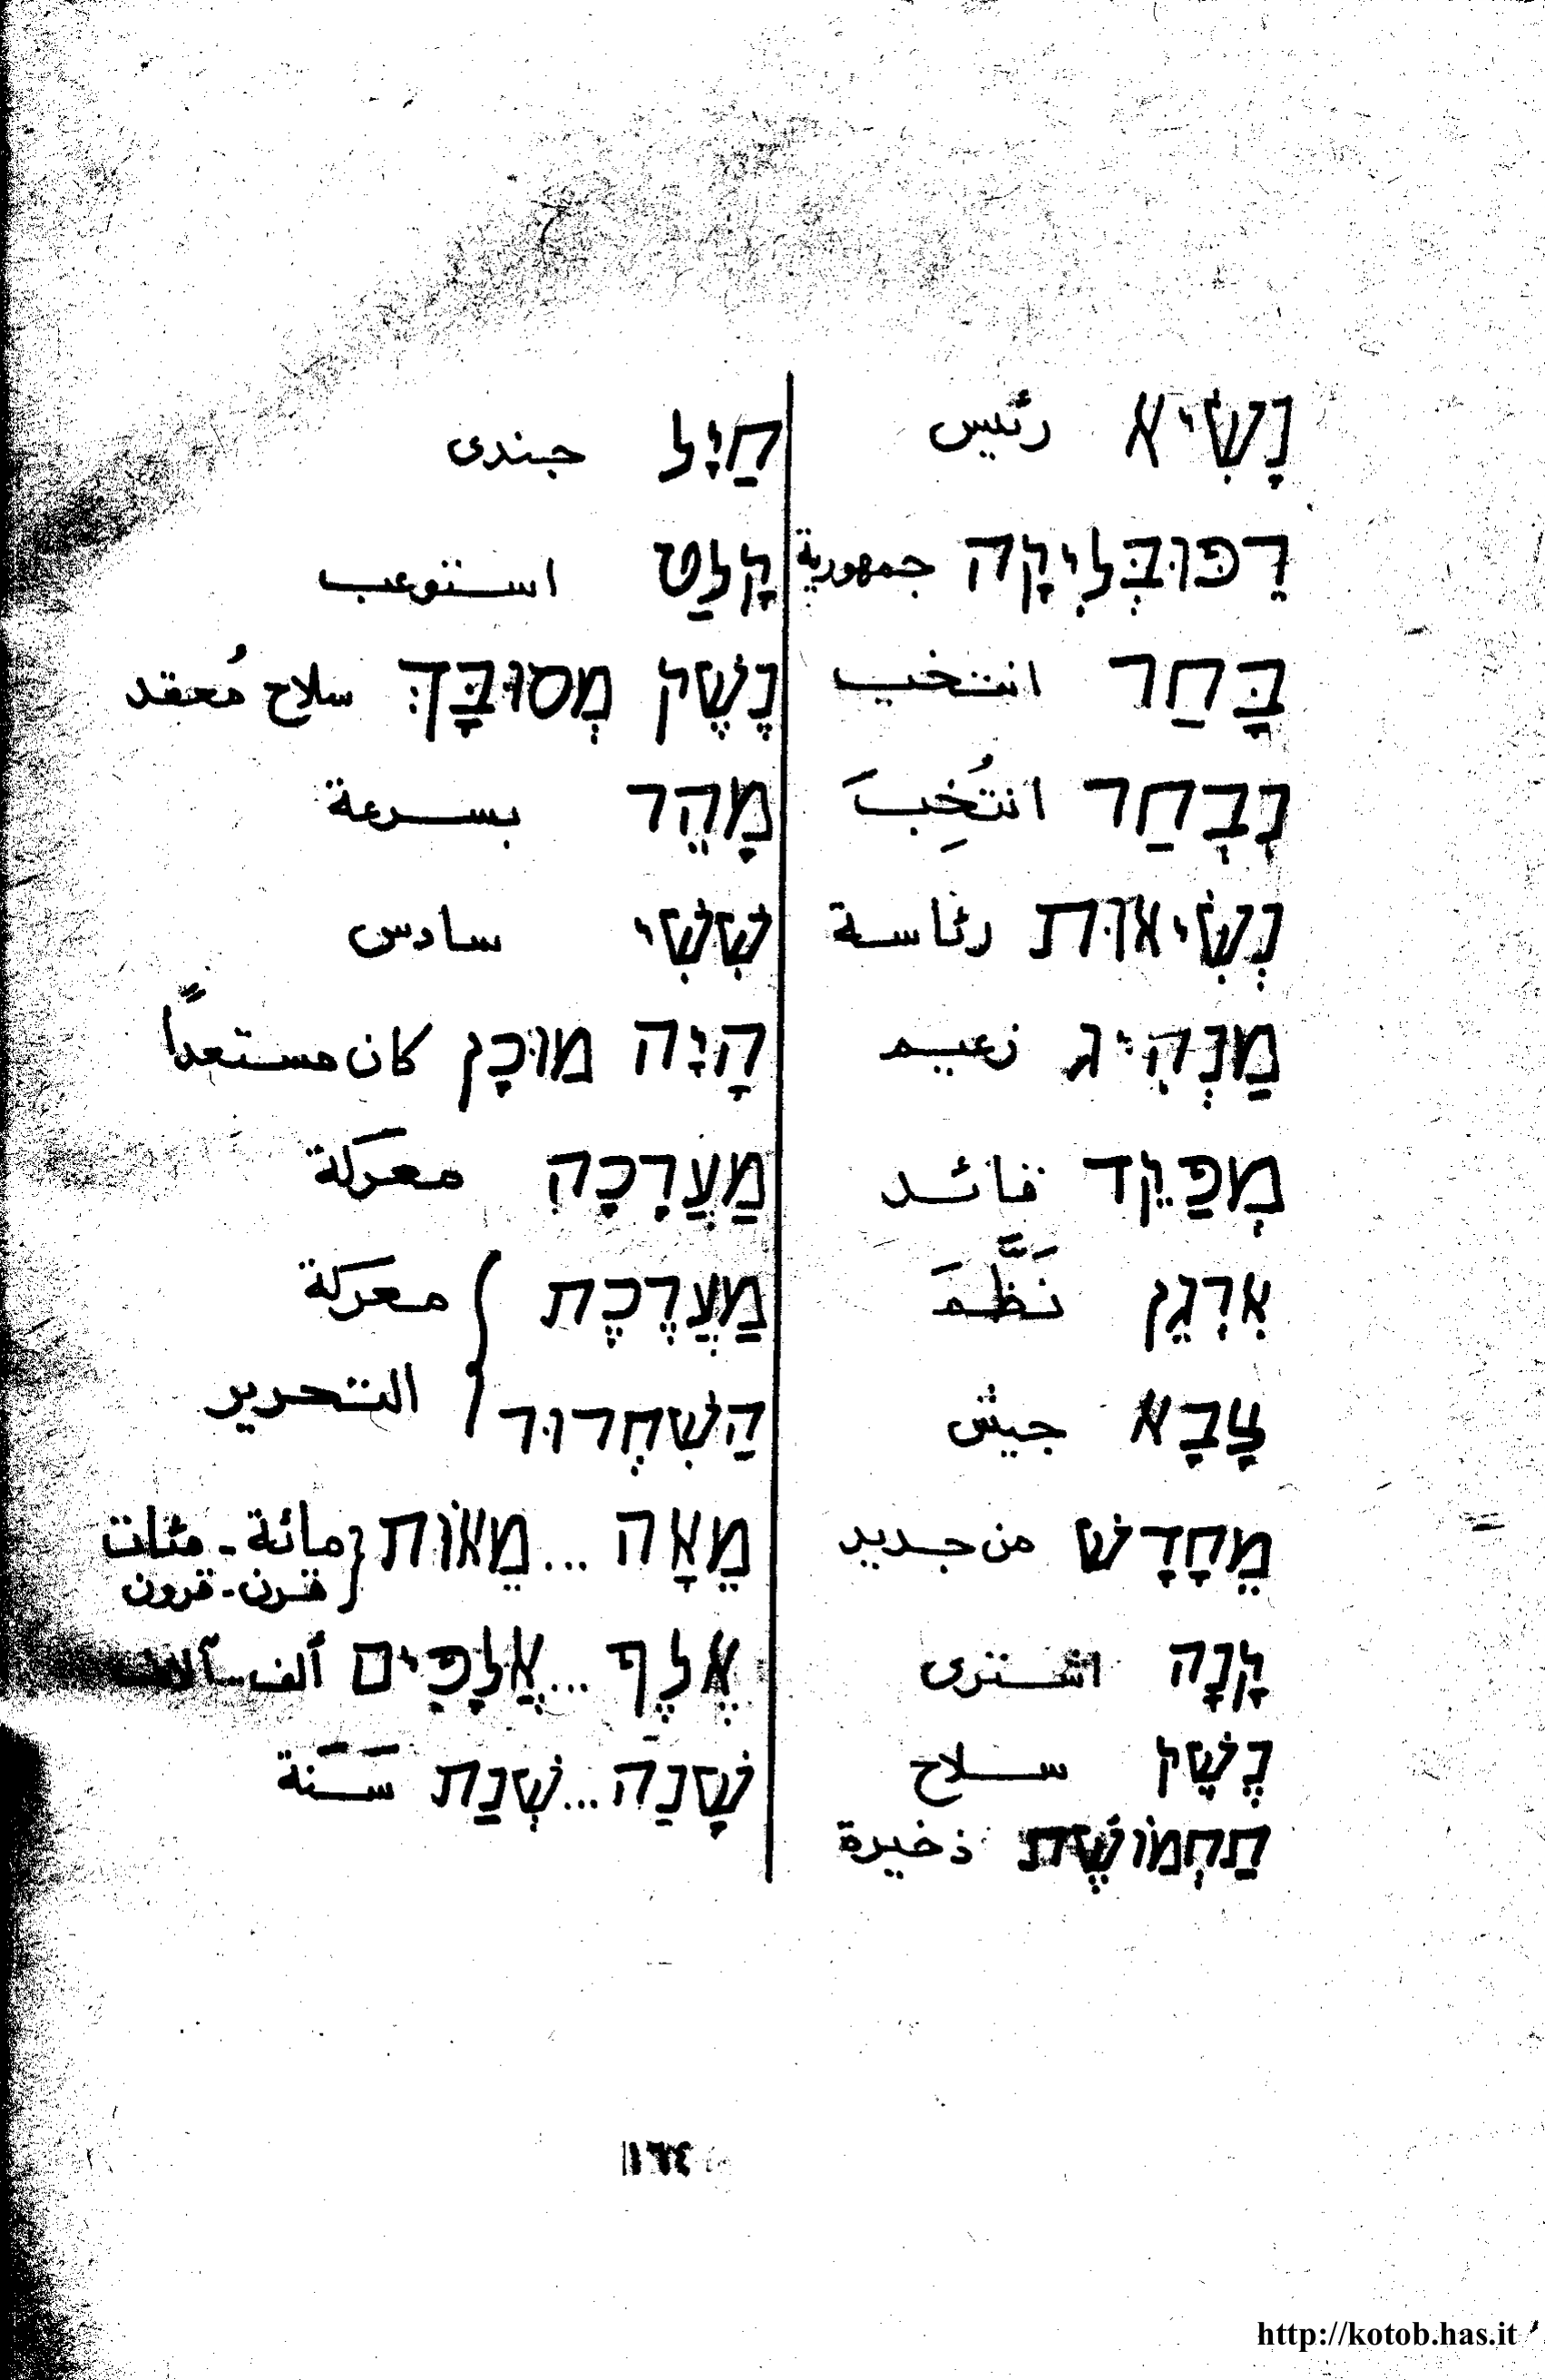 נָשִׂיא رئيس
רֵפּוּבְּלִיקָה جمهورية
בָּחַר انتخب
נִבְחַר انتُخِبَ
נְשִׂיאוּת رئاسة
מַנְהִיג زعيم
מְפַקֵד قائد
אִרְגֵן نَظَّمَ
צָבָא جيش
מֵחָדָשׁ من جديد
קָנָה اشترى
נֶשֶׁק سلاح
תַחְמוֹשֶׁת ذخيرة
חַיָּל جندى
קָלַט استوعب
נֶשֶׁק מְסוּבָּךְ سلاح مُعقد
מָהֵר بسرعة
שִׁשִׁי سادس
הָיָה מוּכָן كان مستعداً
מַעֲרָכָה معركة
מַעֲרֶכֶת معركة
הַשִׁחְרוּר التحرير
מֵאָה ... מֵאוֹת مائة - مئات
قرن - قرون
אֶלֶף ... אֲלָפִים ألف - آلاف
שָׁנָה ... שְׁנַת سَنَة
١٦٤
http://kotob.has.it